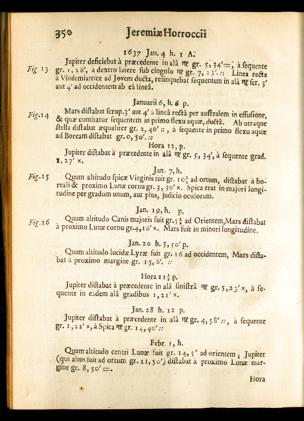 350 Jeremiæ Horroccii
1637 Jan. 4 h. 1 A.
Jupiter deficiebat à præcedente in alâ ♍ gr. 5, 34′ , à sequente
Fig. 13 gr. 1, 28′, à dextro latere sub cingulo ♍ gr. 7, 23′. :: Linea recta
à Vindemiatrice ad Jovem ducta, relinquebat sequentum in alâ ♍ scr. 3′
aut 4′ ad occidentem ab eâ lineâ.
Januarii 6, h. 6 p.
Mars distabat scrup. 3′ aut 4′ à lineâ rectâ per australem in effusione,
Fig. 14 & quæ comitatur sequentum in primo flexu aquæ, ductâ. Ab utraque
stella distabat æqualiter gr. 2, 46′ :: , à sequente in primo flexu aquæ
ad Boream distabat gr. 0, 50′. ::
Hora 12, p.
Jupiter distabat à præcedente in alâ ♍ gr. 5, 34′, à sequente grad.
1, 27′ ×.
Jan. 7, h.
Fig. 15 Quum altitudo spicæ Virginis fuit gr. 10½ ad ortum, distabat à bo-
reali & proximo Lunæ cornu gr. 3, 30′ ×. Spica erat in majori longi-
tudine per gradum unum, aut plus, judicio oculorum.
Jan. 19, h. p.
Quum altitudo Canis majoris fuit gr. ad Orientem, Mars distabat
Fig. 16 à proximo Lunæ cornu gr. 4, 10′ ×. Mars fuit in minori longitudine.
Jan. 20 h. 5, 50′ p.
Quum altitudo lucidæ Lyræ fuit gr. 16 ad occidentem, Mars dista-
bat à proximo margine gr. 15, 8′. ::
Hora 11½ p.
Jupiter distabat à præcedente in alâ sinistrâ ♍ gr. 5, 23′ ×, à se-
quente in eâdem alâ gradibus 1, 21′ ×.
Jan. 28 h. 12 p.
Jupiter distabat à præcedente in alâ ♍ gr. 4, 58′ :: , à sequente
gr. 1, 22′ ×, à Spica ♍ gr. 14, 40′ ::
Febr. 1, h.
Quum altitudo centri Lunæ fuit gr. 14, 5′ ad orientem ; Jupiter
(qui altus fuit ad ortum gr. 21, 50′) distabat à proximo Lunæ mar-
gine gr. 8, 50′
Hora